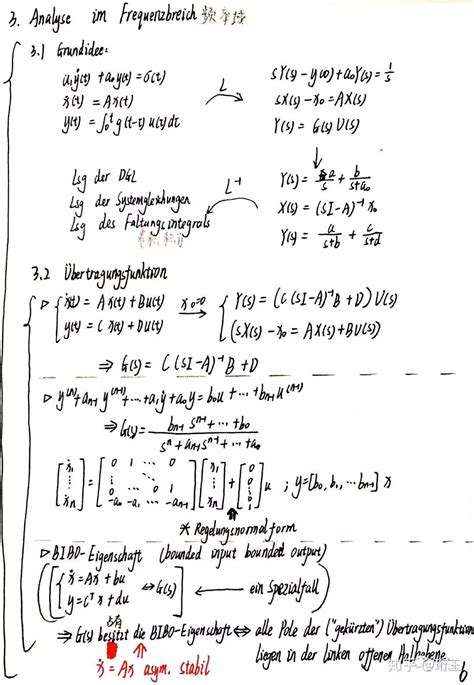 3. Analyse im Frequenzbreich 频率域
3.1 Grundidee:
a₁ẏ(t) + a₀y(t) = σ(t)
ẋ(t) = Ax(t)
y(t) = ∫₀ᵗ g(t-τ) u(τ) dτ
L
sY(s) - y(0) + a₀Y(s) = 1/s
sX(s) - x₀ = AX(s)
Y(s) = G(s) U(s)
Lsg der DGL
Lsg der Systemgleichungen
Lsg des Faltungsintegrals
卷积积分
L⁻¹
Y(s) = a/s + b/(s+a₀)
X(s) = (sI-A)⁻¹ x₀
Y(s) = a/(s+b) + c/(s+d)
3.2 Übertragungsfunktion
▷ ẋ(t) = Ax(t) + Bu(t)
y(t) = Cx(t) + Du(t)
x₀=0
Y(s) = (C(sI-A)⁻¹B + D)U(s)
(sX(s) - x₀ = AX(s) + BU(s)
⇒ G(s) = C(sI-A)⁻¹B + D
▷ y⁽ⁿ⁾ + aₙ₋₁ y⁽ⁿ⁻¹⁾ + ... + a₁ẏ + a₀y = b₀u + ... + bₙ₋₁u⁽ⁿ⁻¹⁾
⇒ G(s) = (bₙ₋₁ sⁿ⁻¹ + ... + b₀)/(sⁿ + aₙ₋₁sⁿ⁻¹ + ... + a₀)
[ẋ₁ ⋮ ẋₙ] = [0 1 ... 0 ⋮ ⋱ ⋮ 0 ... 1 -a₀ -a₁ ... -aₙ₋₁] [x₁ ⋮ xₙ] + [0 0 ⋮ 0 1] u ; y = [b₀, b₁, ... bₙ₋₁] x
* Regelungsnormalform
▷ BIBO-Eigenschaft (bounded input bounded output)
ẋ = Ax + bu
y = Cᵀx + du
⇔ G(s)
ein Spezialfall
⇒ G(s) besitzt die BIBO-Eigenschaft ⇔ alle Pole der ("gekürzten") Übertragungsfunktion
占有
liegen in der linken offenen Halbebene.
ẋ = Ax asym. stabil
6